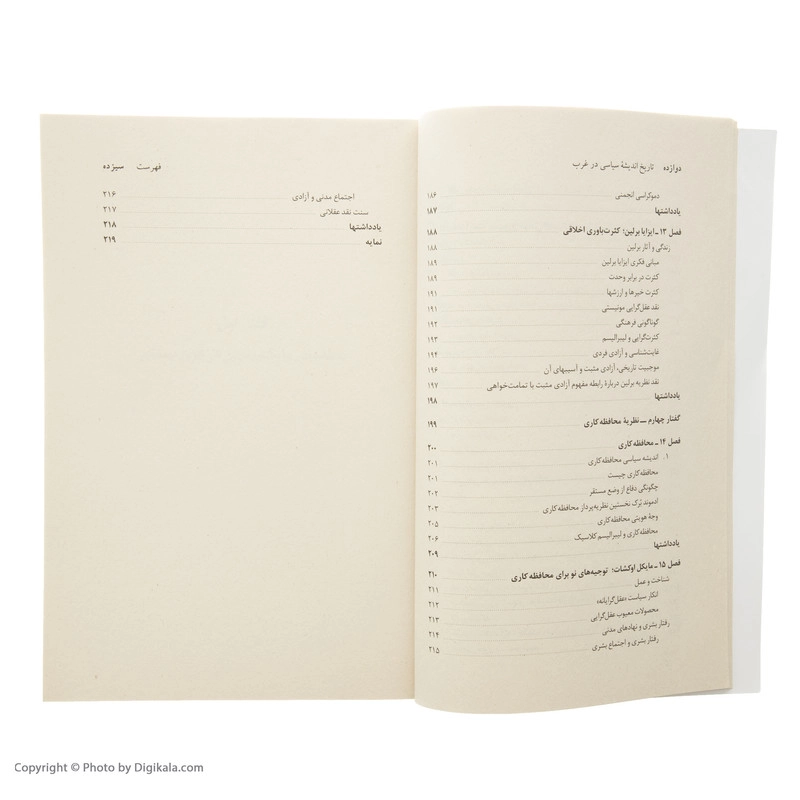 دوازده تاریخ اندیشهٔ سیاسی در غرب
دموکراسی انجمنی ۱۸۶
یادداشتها ۱۸۷
فصل ۱۳ ـ ایزایا برلین: کثرت‌باوری اخلاقی ۱۸۸
زندگی و آثار برلین ۱۸۸
مبانی فکری ایزایا برلین ۱۸۹
کثرت در برابر وحدت ۱۸۹
کثرت خیرها و ارزشها ۱۹۱
نقد عقل‌گرایی مونیستی ۱۹۱
گوناگونی فرهنگی ۱۹۲
کثرت‌گرایی و لیبرالیسم ۱۹۳
غایت‌شناسی و آزادی فردی ۱۹۴
موجبیت تاریخی، آزادی مثبت و آسیبهای آن ۱۹۶
نقد نظریه برلین دربارهٔ رابطه مفهوم آزادی مثبت با تمامت‌خواهی ۱۹۷
یادداشتها ۱۹۸
گفتار چهارم ـــ نظریهٔ محافظه‌کاری ۱۹۹
فصل ۱۴ ـ محافظه‌کاری ۲۰۰
۱. اندیشه سیاسی محافظه‌کاری ۲۰۱
محافظه‌کاری چیست ۲۰۱
چگونگی دفاع از وضع مستقر ۲۰۲
ادموند بُرک نخستین نظریه‌پرداز محافظه‌کاری ۲۰۳
وجهٔ هویتی محافظه‌کاری ۲۰۵
محافظه‌کاری و لیبرالیسم کلاسیک ۲۰۶
یادداشتها ۲۰۹
فصل ۱۵ ـ مایکل اوکشات: توجیه‌های نو برای محافظه‌کاری ۲۱۰
شناخت و عمل ۲۱۱
انکار سیاست «عقل‌گرایانه» ۲۱۲
محصولات معیوب عقل‌گرایی ۲۱۳
رفتار بشری و نهادهای مدنی ۲۱۴
رفتار بشری و اجتماع بشری ۲۱۵
فهرست سیزده
اجتماع مدنی و آزادی ۲۱۶
سنت نقد عقلانی ۲۱۷
یادداشتها ۲۱۸
نمایه ۲۱۹
Copyright © Photo by Digikala.com